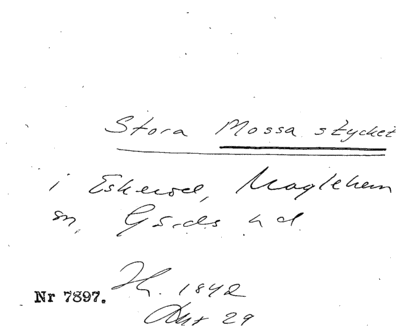 Stora Mossa stycket
i Maglehem
sn, Gärds hd
Nr 7897.
1842
29